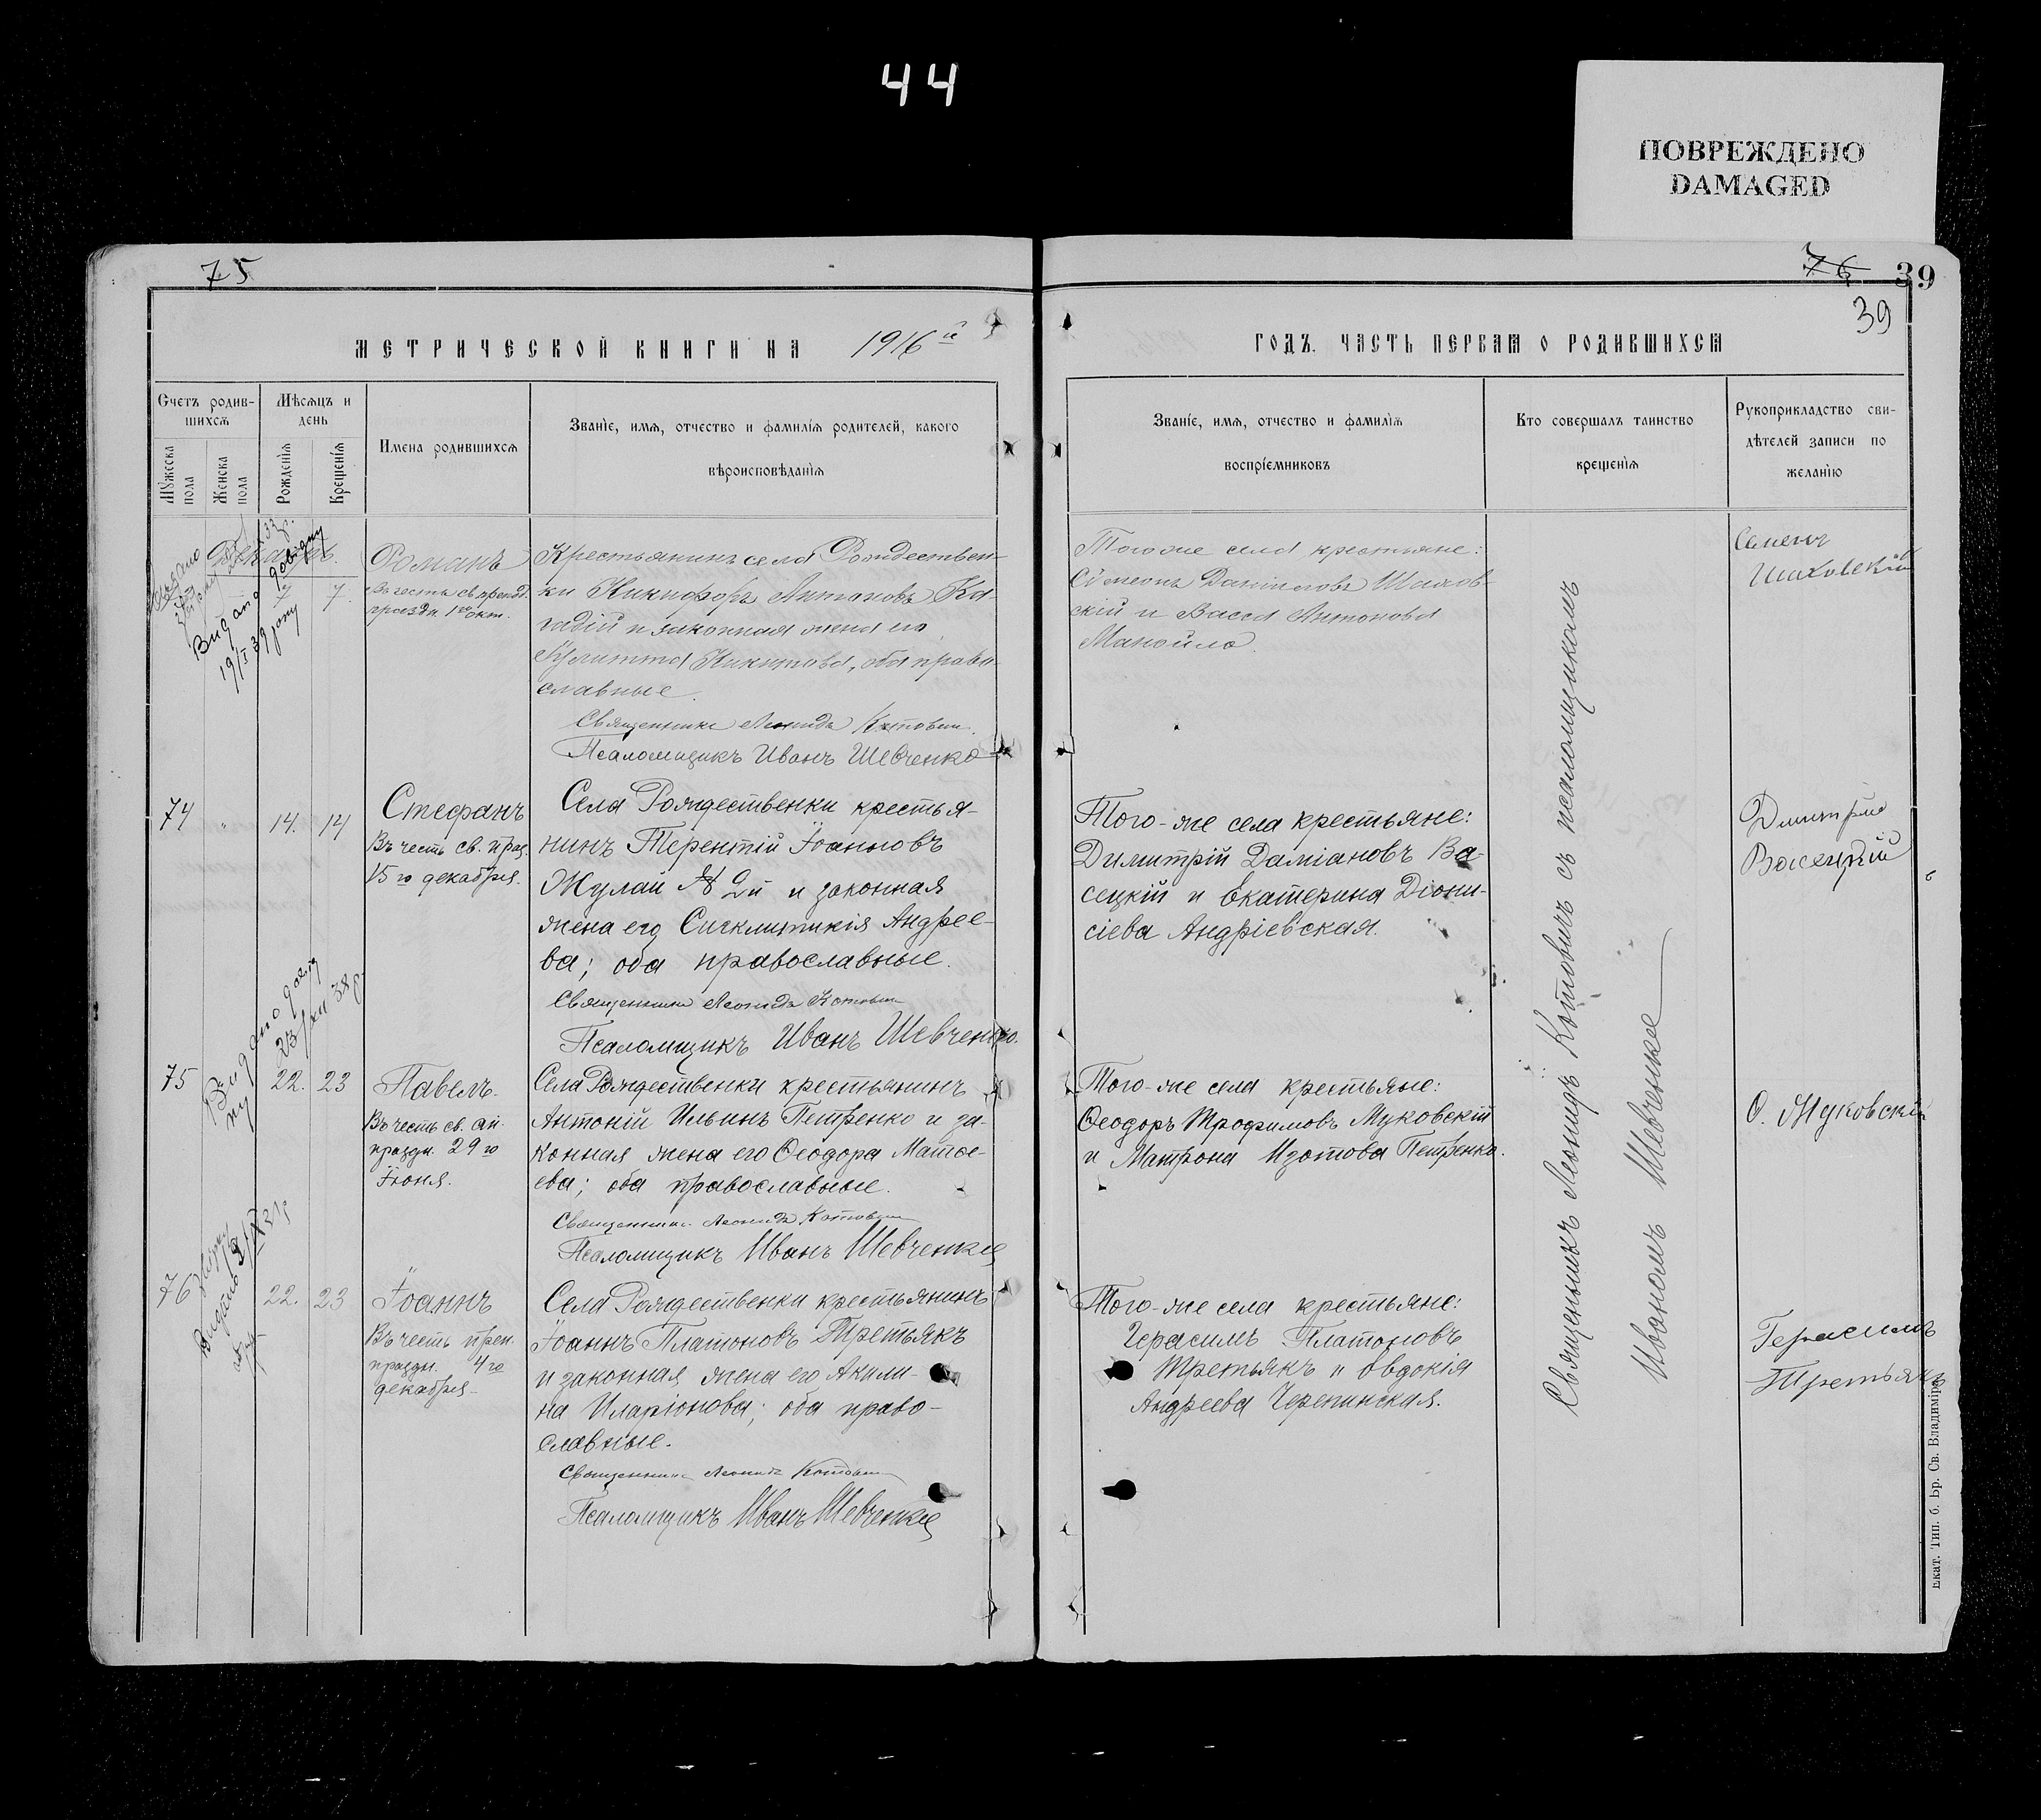 44
ПОВРЕЖДЕНО
DAMAGED
75
76
39
39
МЕТРИЧЕСКОЙ КНИГИ НА 1916й
ГОДЪ. ЧАСТЬ ПЕРВАЯ О РОДИВШИХСЯ
Счетъ родив-
шихся
Мужеска пола
Женска пола
Мѣсяцъ и
день
Рожденія
Крещенія
Имена родившихся
Званіе, имя, отчество и фамилія родителей, какого
вѣроисповѣданія
Званіе, имя, отчество и фамилія
воспріемниковъ
Кто совершалъ таинство
крещенія
Рукоприкладство сви-
дѣтелей записи по
желанію
7 7.
Романъ
1го окт.
Крестьянинъ села Рождествен-
ки Никифоръ
и законная жена его
Никитова, оба право-
славные.
Священникъ Леонидъ Котович
Псаломщикъ Иванъ Шевченко
Того же села крестьяне:
Сѵмеонъ Даніиловъ Шахов-
скій и Васса Антонова
Манойло.
Семенъ
Шаховскій
Видано довідку
19/I 39 року
74 " 14. 14
Стефанъ
Въ честь св. праз.
15го декабря.
Села Рождественки крестья-
нинъ Терентій Іоанновъ
Жулай 2й и законная
жена его Сигклитикія Андрее-
ва; оба православные.
Священникъ Леонидъ Котович
Псаломщикъ Иванъ Шевченко.
Того-же села крестьяне:
Димитрій Даміановъ Ва-
сецкій и Екатерина Діони-
сіева Андріевская.
Димитрий
Васецкій
Видано довід
ку 23/XII 38 р.
75 22. 23
Павелъ.
Въ честь св. ап.
праздн. 29го
Іюня.
Села Рождественки крестьянинъ
Антоній Ильинъ Петренко и за-
конная жена его Ѳеодора Матѳе-
ева; оба православные.
Священникъ Леонидъ Котович
Псаломщикъ Иванъ Шевченко
Того-же села крестьяне:
Ѳеодоръ Трофимовъ Жуковскій
и Матрона Изотова Петренко.
Ѳ. Жуковскій
76 22. 23
Іоаннъ
Въ честь преп.
праздн. 4го
декабря
Села Рождественки крестьянинъ
Іоаннъ Платоновъ Третьякъ
и законная жена его Акили-
на Иларіонова; оба право-
славные.
Священникъ Леонидъ Котович
Псаломщикъ Иванъ Шевченко
Того-же села крестьяне:
Герасимъ Платоновъ
Третьякъ и Овдокія
Андреева Черепинская.
Герасимъ
Третьякъ
Священникъ Леонидъ Котовичъ съ псаломщикомъ
Иваномъ Шевченкое
Екат. Тип. б. Бр. Св. Владиміра.